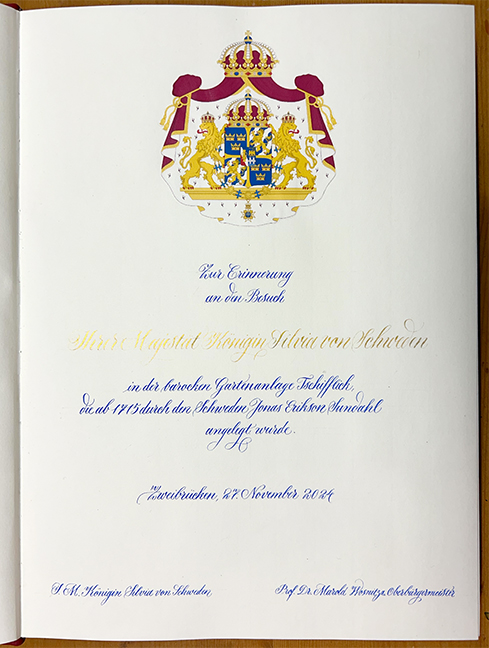 Zur Erinnerung
an den Besuch
Ihrer Majestät Königin Silvia von Schweden
in der barocken Gartenanlage Tschifflick,
die ab 1715 durch den Schweden Jonas Erikson Sundahl
angelegt wurde.
Zweibrücken, 27. November 2024
I. M. Königin Silvia von Schweden
Prof. Dr. Marold Wosnitza, Oberbürgermeister